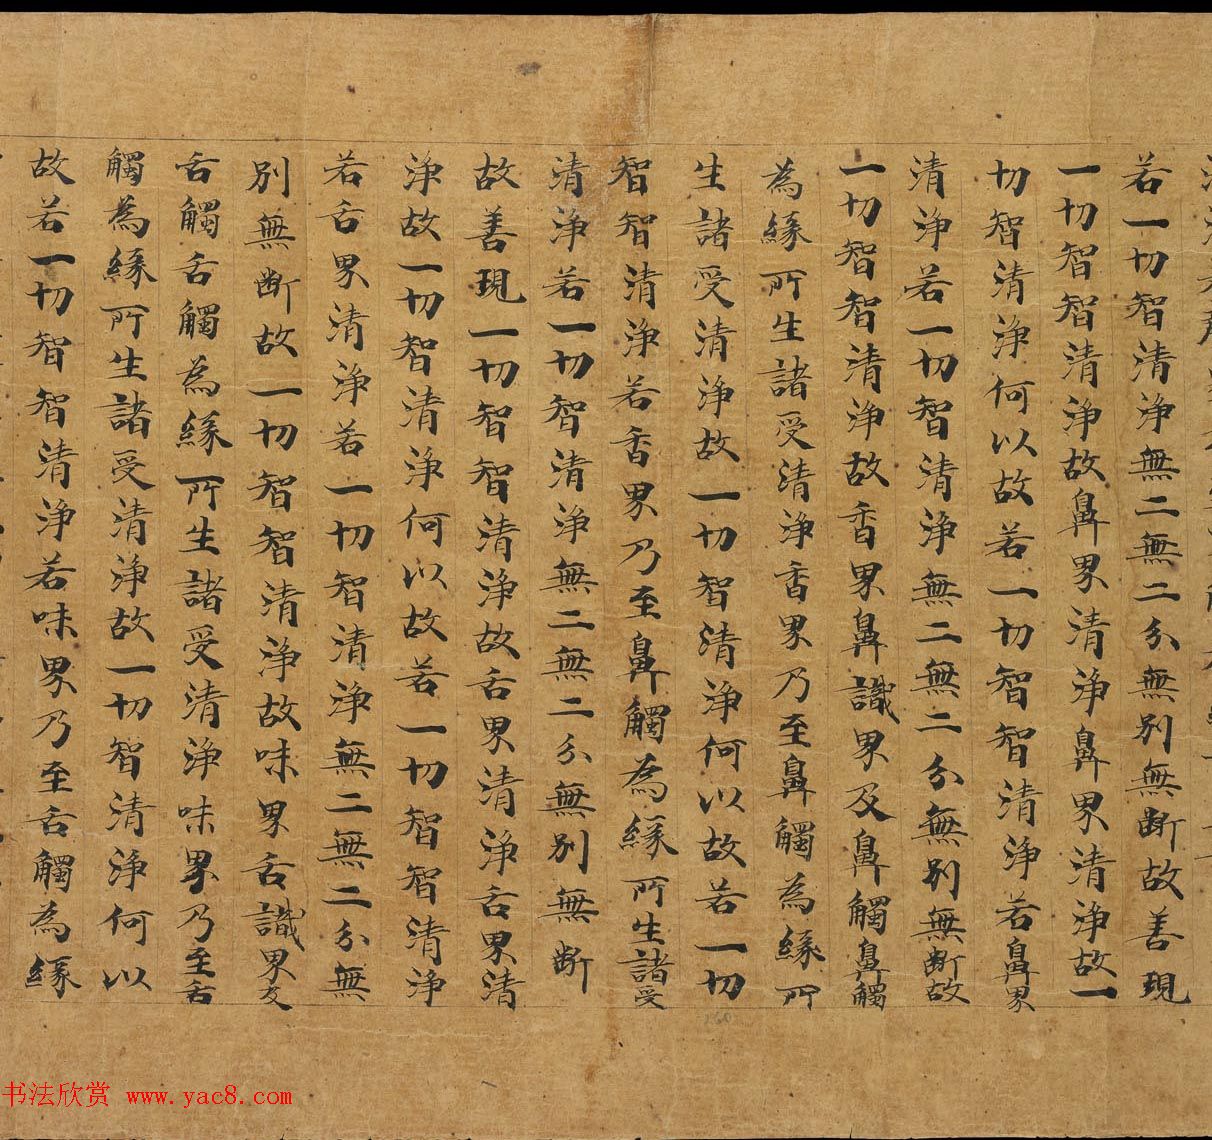 若一切智清淨無二無二分無別無斷故善現
一切智智清淨故鼻界清淨鼻界清淨故一
切智清淨何以故若一切智智清淨若鼻界
清淨若一切智清淨無二無二分無別無斷故
一切智智清淨故香界鼻識界及鼻觸鼻觸
為緣所生諸受清淨香界乃至鼻觸為緣所
生諸受清淨故一切智清淨何以故若一切
智智清淨若香界乃至鼻觸為緣所生諸受
清淨若一切智清淨無二無二分無別無斷
故善現一切智智清淨故舌界清淨舌界清
淨故一切智清淨何以故若一切智智清淨
若舌界清淨若一切智清淨無二無二分無
別無斷故一切智智清淨故味界舌識界及
舌觸舌觸為緣所生諸受清淨味界乃至舌
觸為緣所生諸受清淨故一切智清淨何以
故若一切智智清淨若味界乃至舌觸為緣
书法欣赏 www.yac8.com